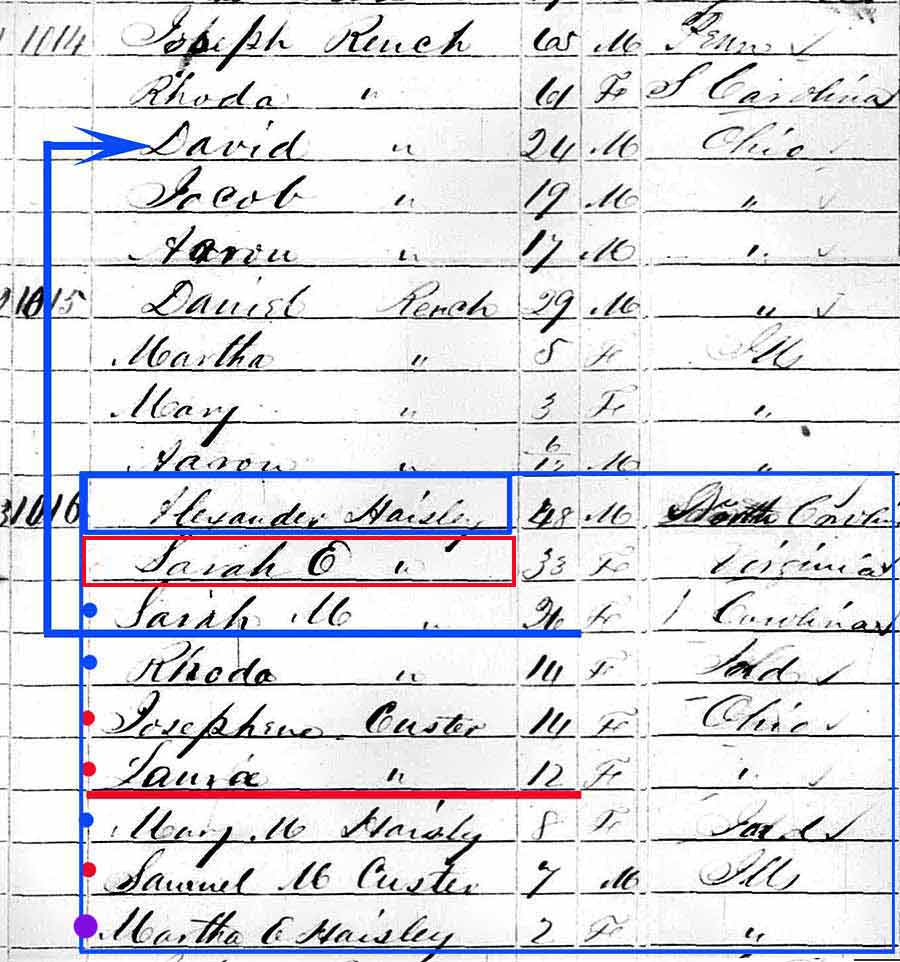 1014 Joseph Rench 65 M Penn
Rhoda " 61 Fe S Carolina
David " 24 M Ohio
Jacob " 19 M "
Aaron " 17 M "
1015 Daniel Rench 29 M "
Martha " 5 Fe Ill
Mary " 3 Fe "
Aaron " 6/12 M "
1016 Alexander Haisley 48 M North Carolin
Sarah E " 33 Fe Virginia
Sarah M " Fe Carolina
Rhoda " 14 Fe Ind
Josephine Custer 14 Fe Ohio
Laura " 12 Fe "
Mary M Haisly 8 Fe Ind
Samuel M Custer 7 M Ill
Martha E Haisley 2 Fe "